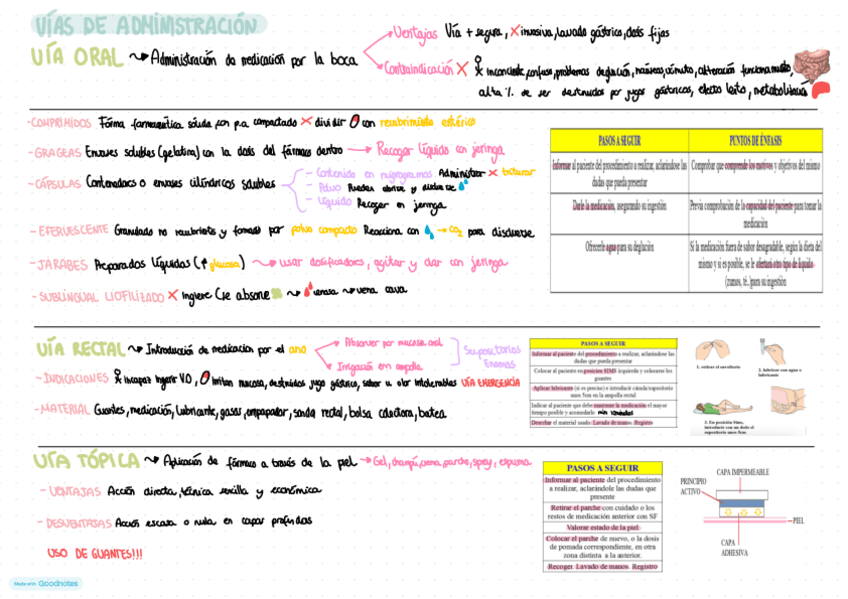 VÍAS DE ADMINISTRACIÓN
VÍA ORAL Administración de medicación por la boca
Ventajas Vía + segura, X invasiva, lavado gástrico, dosis fijas
Contraindicación X inconciente, confuso, problemas deglución, naúseas, vómito, alteración funciona
alta % de ser destruidos por jugos gástricos, efecto lento, metabolismo
-COMPRIMIDOS Fórma farmaceútica sólida con p.a compactado X dividir con recubrimiento entérico
-GRAGEAS Envases solubles (gelatina) con la dosis del fármaco dentro → Recoger líquido con jeringa
-CÁPSULAS Contenedores o envases cilíndricos solubles
- Contenido en migrogramos Administrar X triturar
- Polvo Pueden abrirse y disolverse
- Líquido Recoger en jeringa
-EFERVESCENTE Granulado no recubiertos y formado por polvo compacto Reacciona con → CO2 para disolverse
-JARABES Preparados líquidos (↑ glucosa) usar dosificadores, agitar y dar con jeringa
-SUBLINGUAL LIOFILIZADO X ingiere (se absorve venosa vena cava
PASOS A SEGUIR PUNTOS DE ÉNFASIS
Informar al paciente del procedimiento a realizar, aclarándose las dudas que pueda presentar
Comprobar que comprende los motivos y objetivos del mismo
Darle la medicación, asegurando su ingestión
Previa comprobación de la capacidad del paciente para tomar la medicación
Ofrecerle agua para su deglución
Si la medicación fuera de sabor desagradable, según la dieta del mismo y si es posible, se le ofertará otro tipo de líquido (zumos, té..)para su ingestión
VÍA RECTAL Introducción de medicación por el ano
Absorver por mucosa
Irrigación en ampolla
Supositorios
Enemas
-INDICACIONES incapaz ingerir V.O, irritan mucosa, destruidos jugo gástrico, sabor u olor intolerables VÍA EMERGENCIA
-MATERIAL Guantes, medicación, lubricante, gasas, empapador, sonda rectal, bolsa colectora, batea
PASOS A SEGUIR
Informar al paciente del procedimiento a realizar, aclarándose las dudas que pueda presentar
Colocar al paciente en posición SIMS izquierda y colocarse los guantes
Aplicar lubricante (si es preciso) e introducir cánula/supositorio unos 5cm en la ampolla rectal
Indicar al paciente que debe mantener la medicación el mayor tiempo posible y acomodarlo
Desechar el material usado. Lavado de manos. Registro
1. retirar el envoltorio
2. lubricar con agua o lubricante
3. En posición Sims, introducir con un dedo el supositorio unos 5cm
VÍA TÓPICA Aplicación de fármaco a través de la piel → Gel, champú, crema, parche, spray, espuma
- VENTAJAS Acción directa, técnica sencilla y económica
- DESVENTAJAS Acción escasa o nula en capas profundas
USO DE GUANTES!!!
PASOS A SEGUIR
Informar al paciente del procedimiento a realizar, aclarándole las dudas que presente
Retirar el parche con cuidado o los restos de medicación anterior con SF
Valorar estado de la piel
Colocar el parche de nuevo, o la dosis de pomada correspondiente, en otra zona distinta a la anterior.
Recoger. Lavado de manos. Registro
CAPA IMPERMEABLE
PRINCIPIO ACTIVO
PIEL
CAPA ADHESIVA
Made with Goodnotes